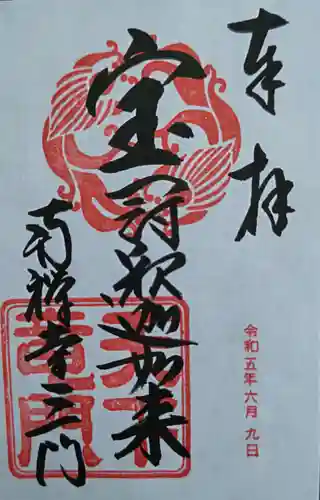 奉拝
令和五年六月九日
宝冠釈迦如来
南禅寺三門